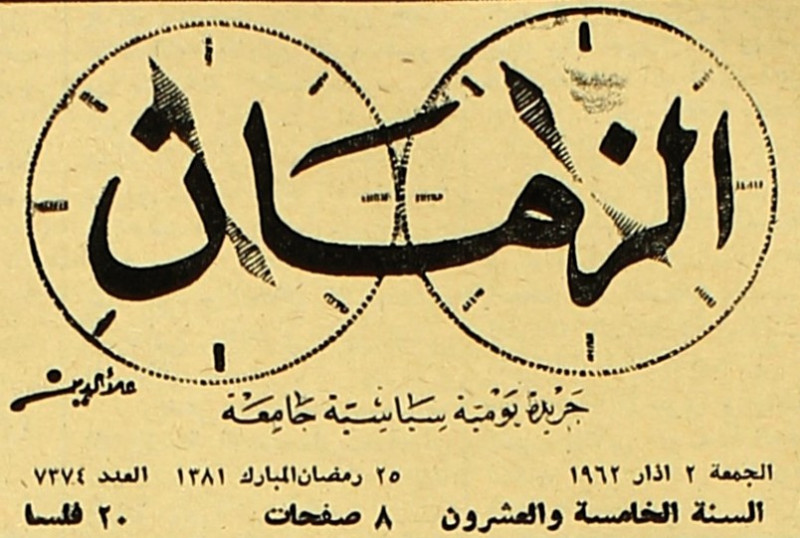 الزمان
علاءالدين
جريدة يومية سياسية جامعة
الجمعة ٢ اذار ١٩٦٢ ٢٥ رمضان المبارك ١٣٨١ العدد ٧٣٧٤
السنة الخامسة والعشرون ٨ صفحات ٢٠ فلسا